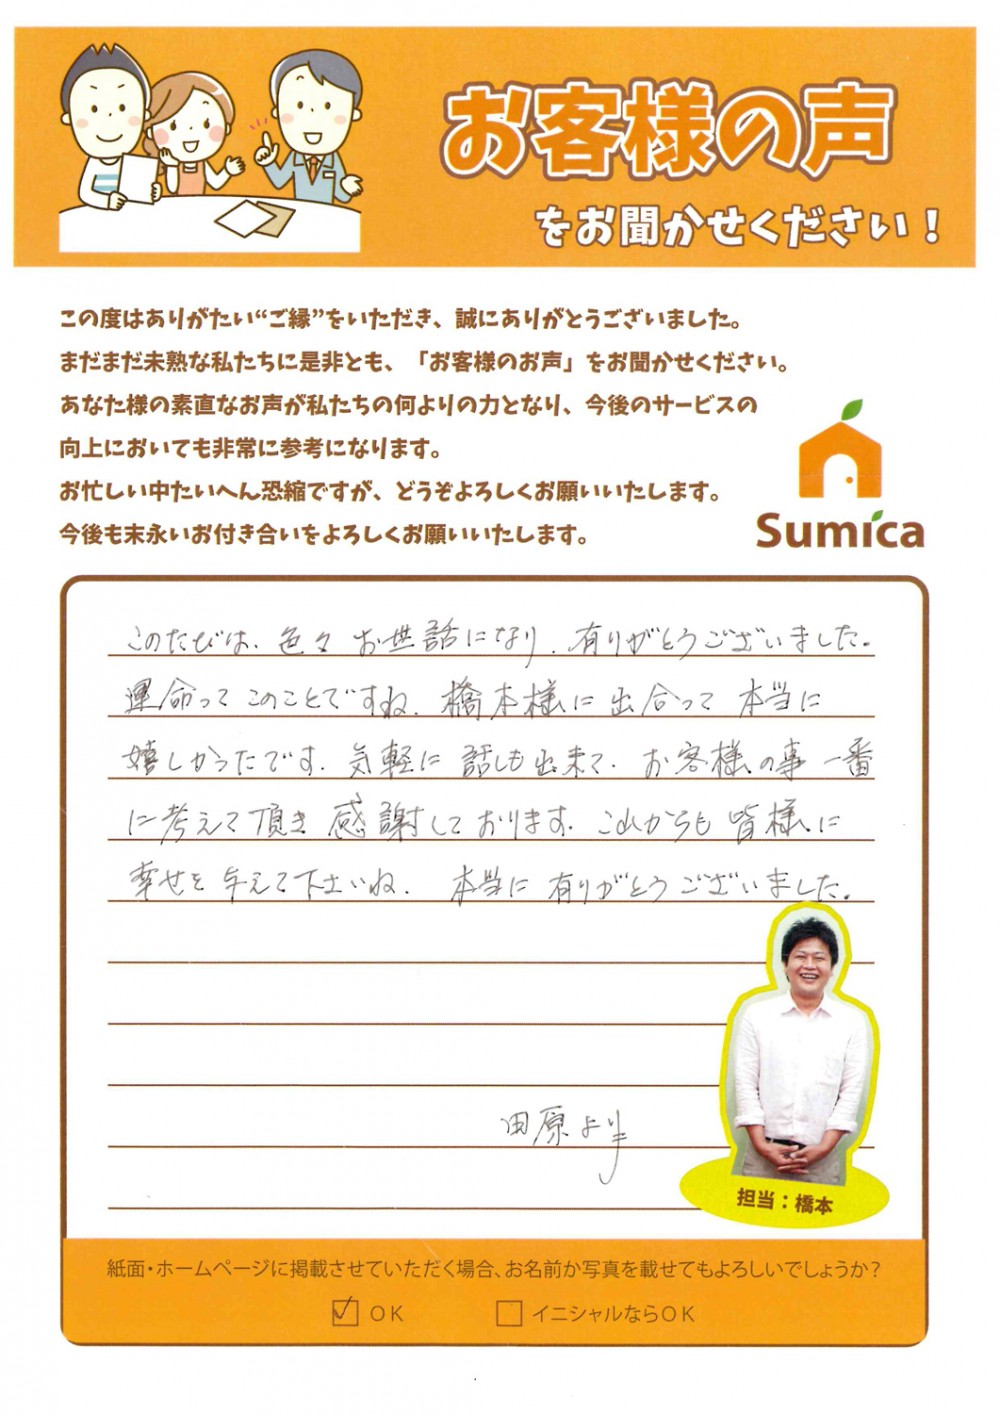 お客様の声
をお聞かせください！
この度はありがたい“ご縁”をいただき、誠にありがとうございました。
まだまだ未熟な私たちに是非とも、「お客様のお声」をお聞かせください。
あなた様の素直なお声が私たちの何よりの力となり、今後のサービスの
向上においても非常に参考になります。
お忙しい中たいへん恐縮ですが、どうぞよろしくお願いいたします。
今後も末永いお付き合いをよろしくお願いいたします。
Sumica
このたびは、色々 お世話になり、有りがとうございました。
運命って このことですね、橋本様に 出合って 本当に
嬉しかったです、気軽に 話しも出来て、お客様の事 一番
に考えて頂き 感謝しております、これからも 皆様に
幸せを 与えて下さいね、本当に 有りがとうございました。
田原より
担当：橋本
紙面・ホームページに掲載させていただく場合、お名前か写真を載せてもよろしいでしょうか？
OK イニシャルならOK